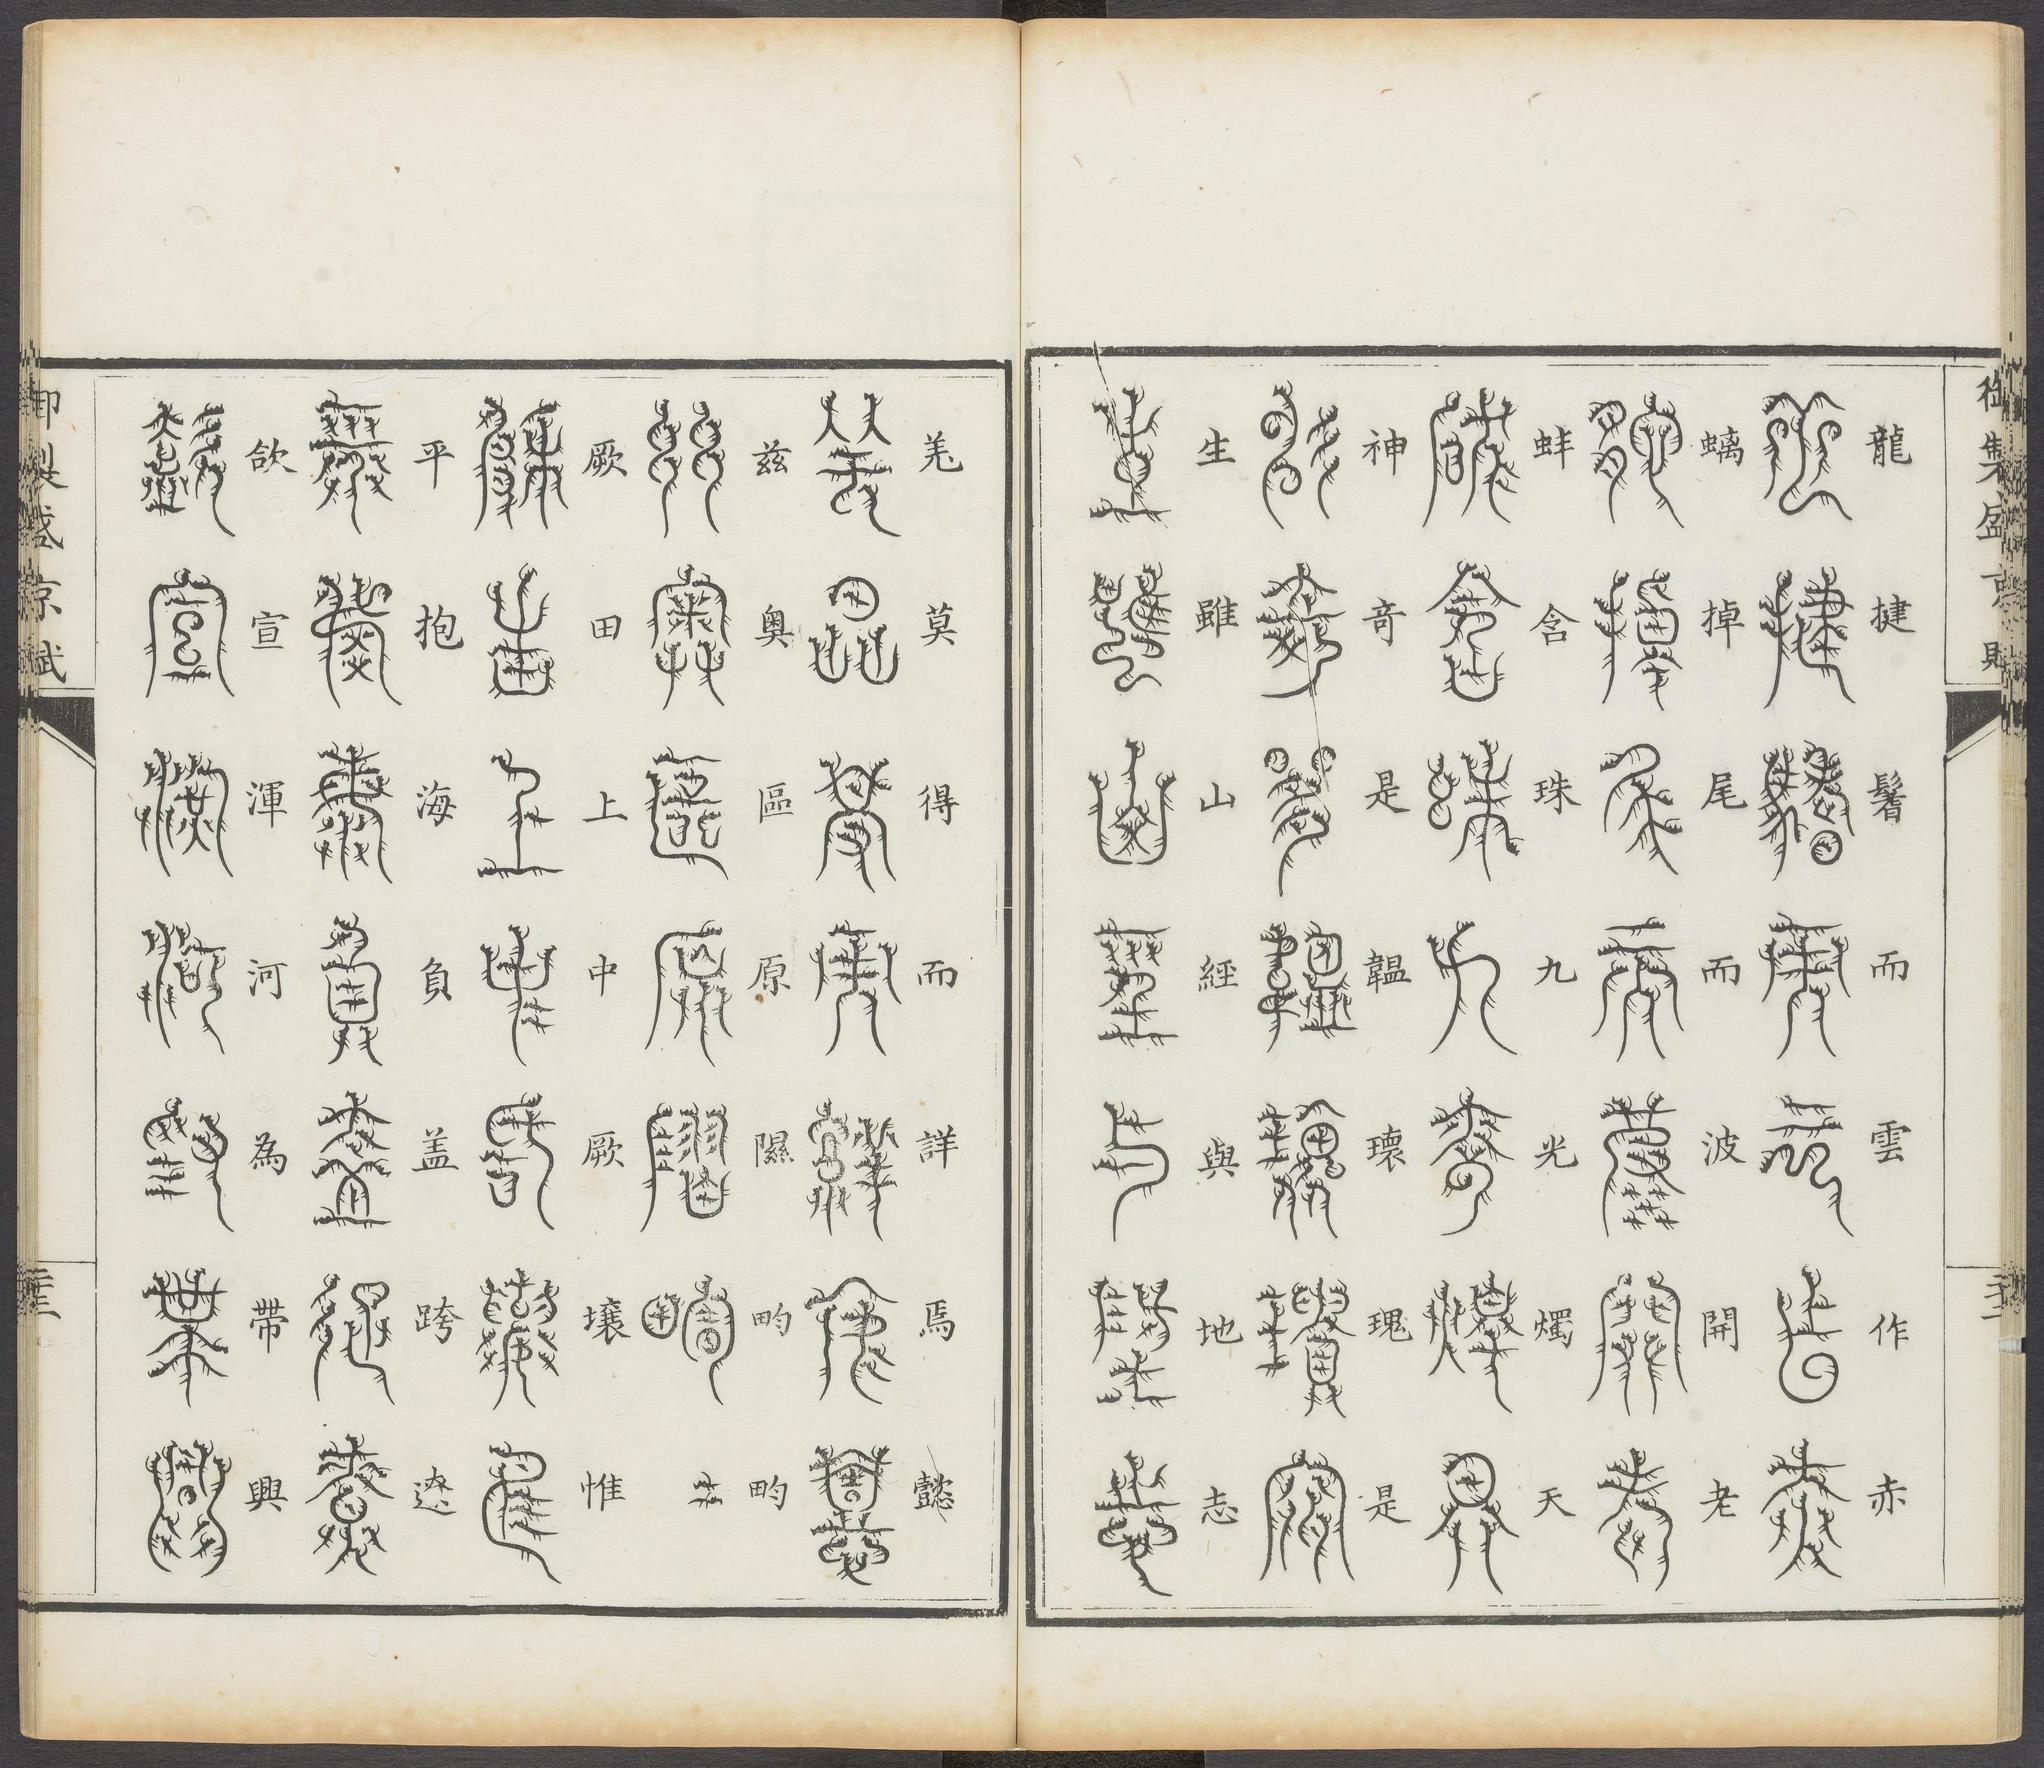 御製盛京賦
龍揵鬐而雲作赤
螭掉尾而波開老
蚌含珠九光燭天
神奇是韞瓌瑰是
生雖山經與地志
羌莫得而詳焉懿
兹奥區原隰畇畇
厥田上中厥壤惟
平抱海負盖跨遼
欱宣渾河為帶興
御製盛京賦